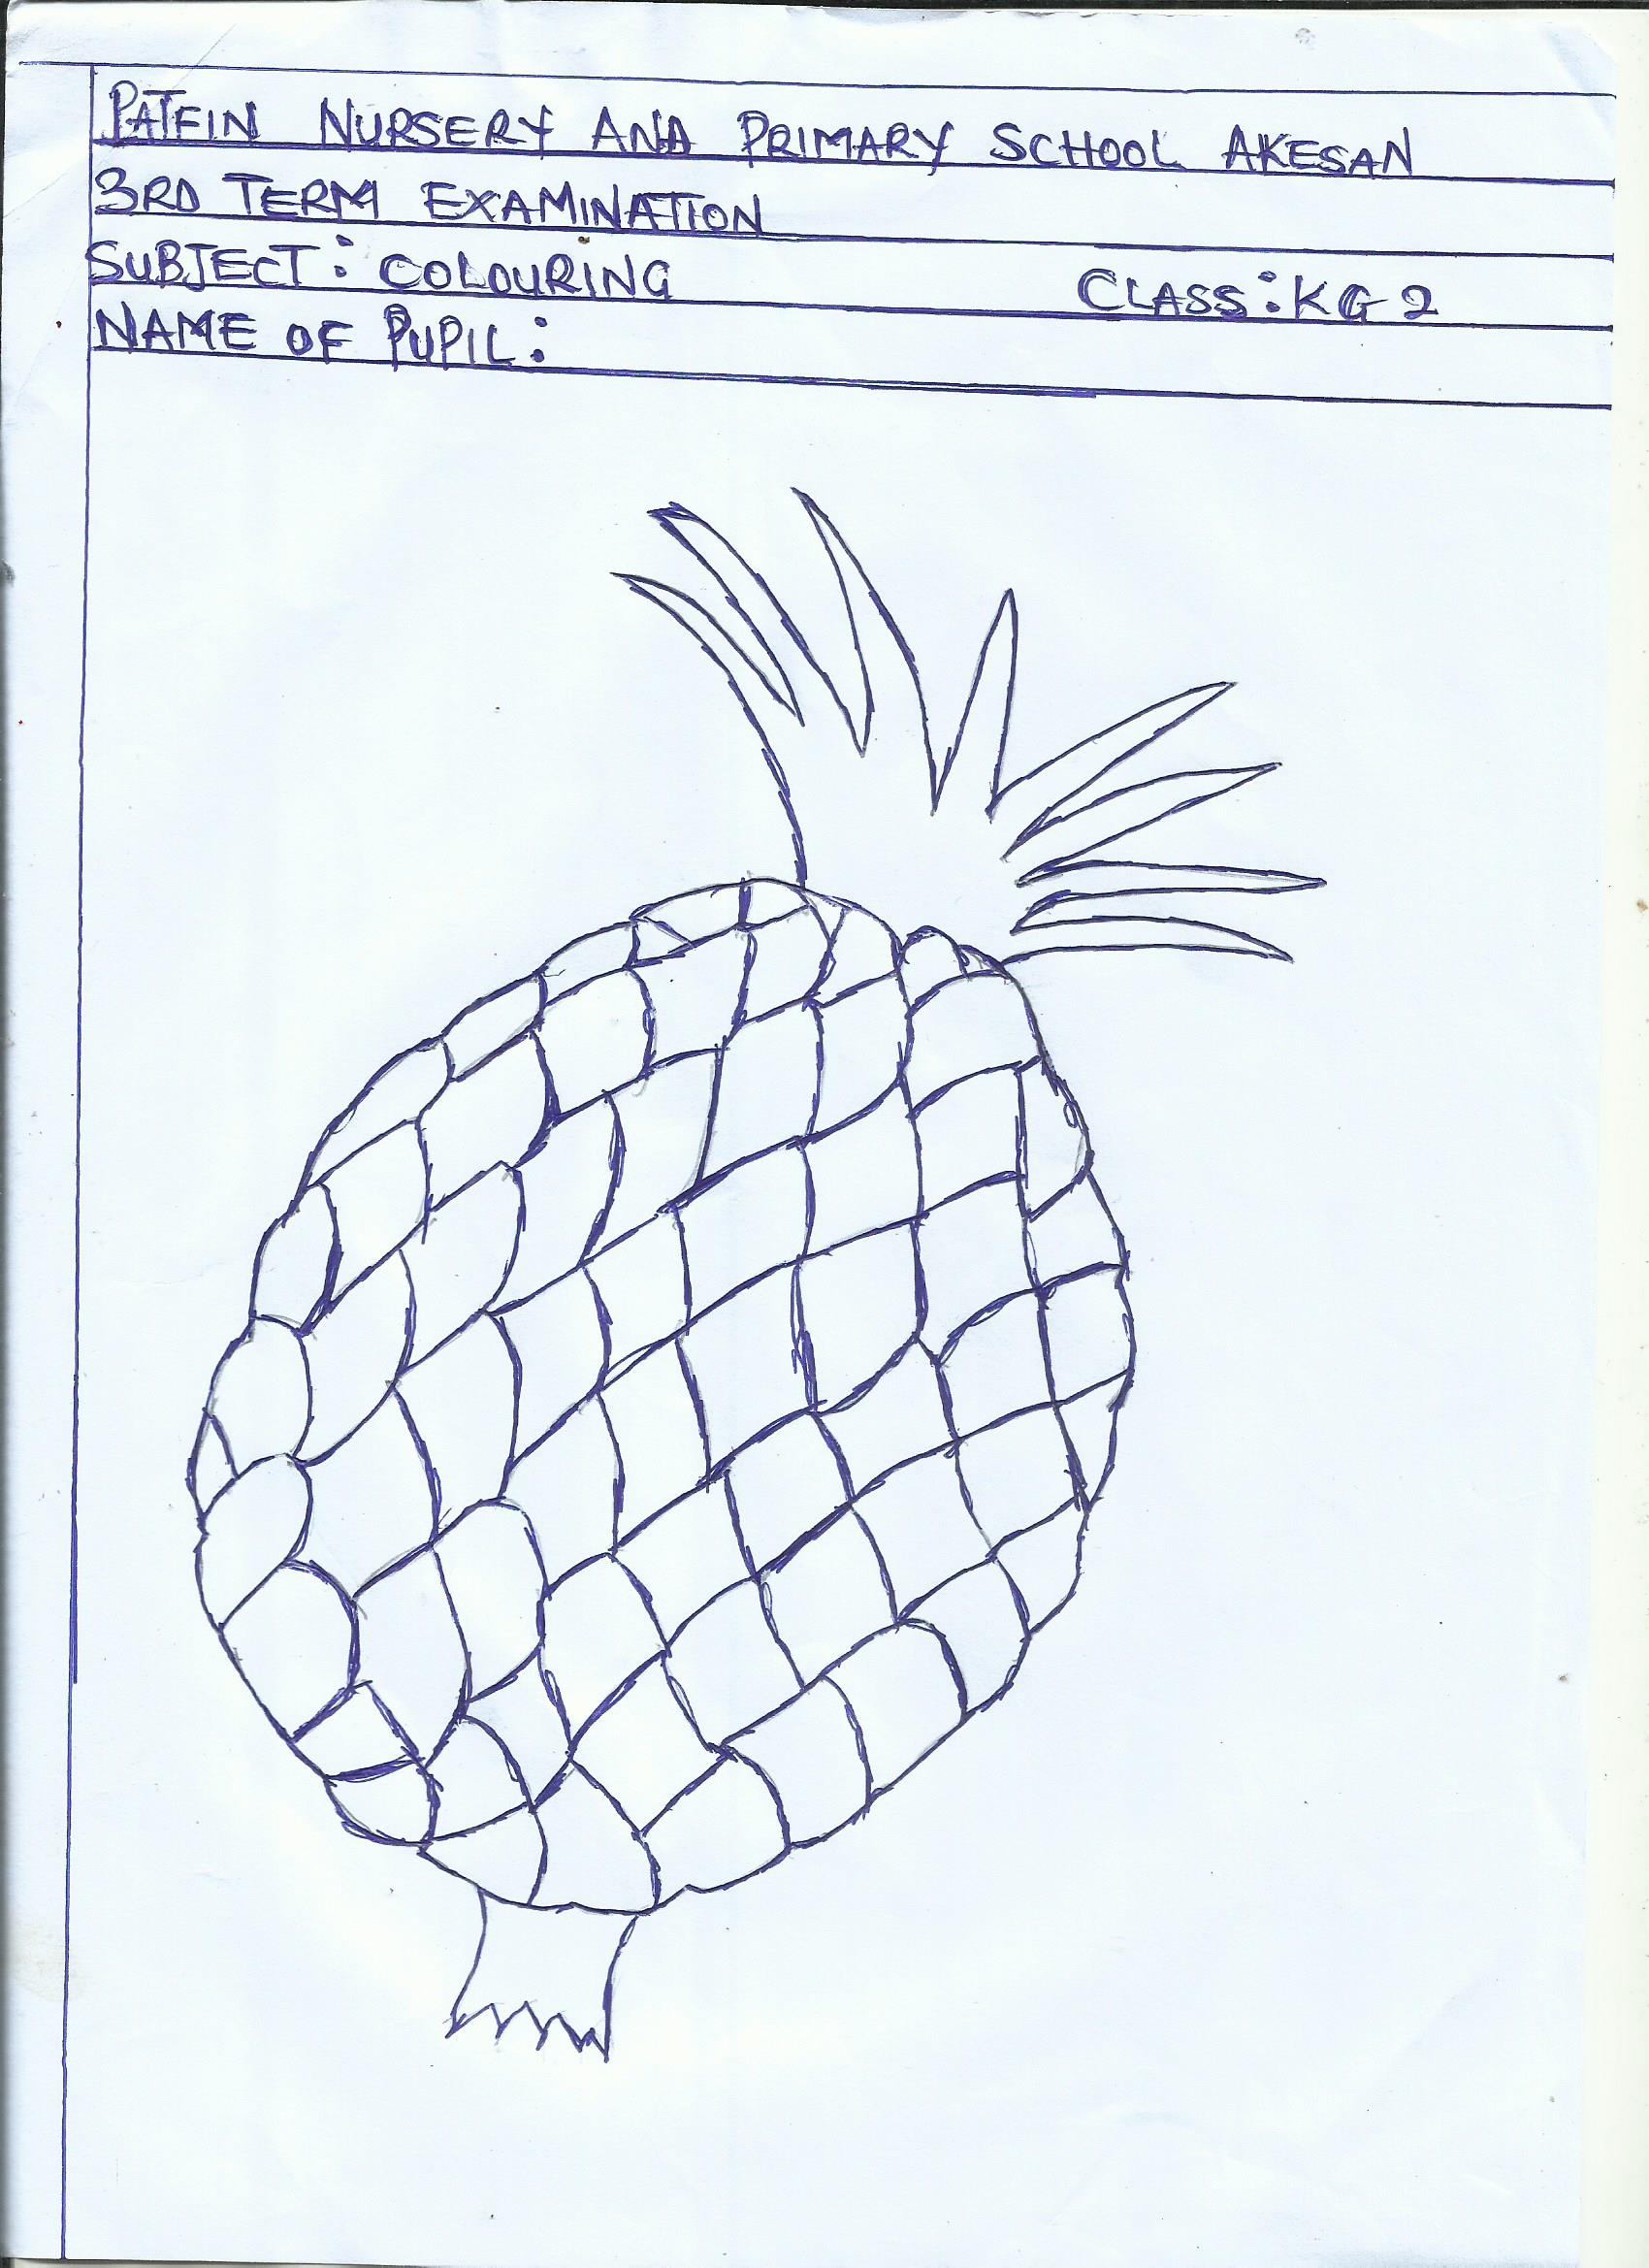 PATFIN NURSERY AND PRIMARY SCHOOL AKESAN
3RD TERM EXAMINATION
SUBJECT: COLOURING CLASS: KG 2
NAME OF PUPIL: